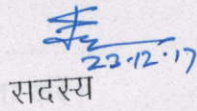 23.12.17
सदस्य